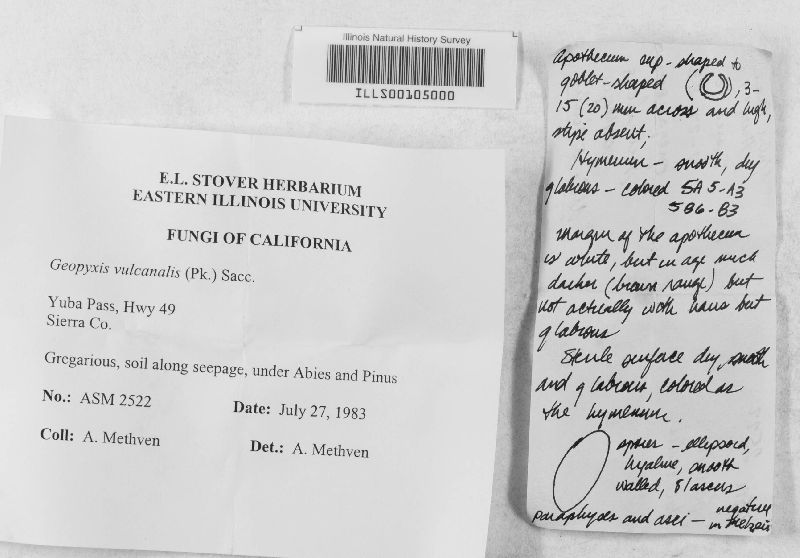 Illinois Natural History Survey
ILLS00105000
E.L. STOVER HERBARIUM
EASTERN ILLINOIS UNIVERSITY
FUNGI OF CALIFORNIA
Geopyxis vulcanalis (Pk.) Sacc.
Yuba Pass, Hwy 49
Sierra Co.
Gregarious, soil along seepage, under Abies and Pinus
No.: ASM 2522 Date: July 27, 1983
Coll: A. Methven Det.: A. Methven
Apothecium cup-shaped to
goblet-shaped ( ), 3-
15 (20) mm across and high,
stipe absent;
Hymenium - smooth, dry
glabrous - colored 5A5-A3
5B6-B3
margin of the apothecium
is white, but in age much
darker (brown range) but
not actually with hairs but
glabrous
Sterile surface dry, smooth
and glabrous, colored as
the hymenium.
spores - ellipsoid,
hyaline, smooth
walled, 8/ascus
paraphyses and asci - negative
in Melzer's